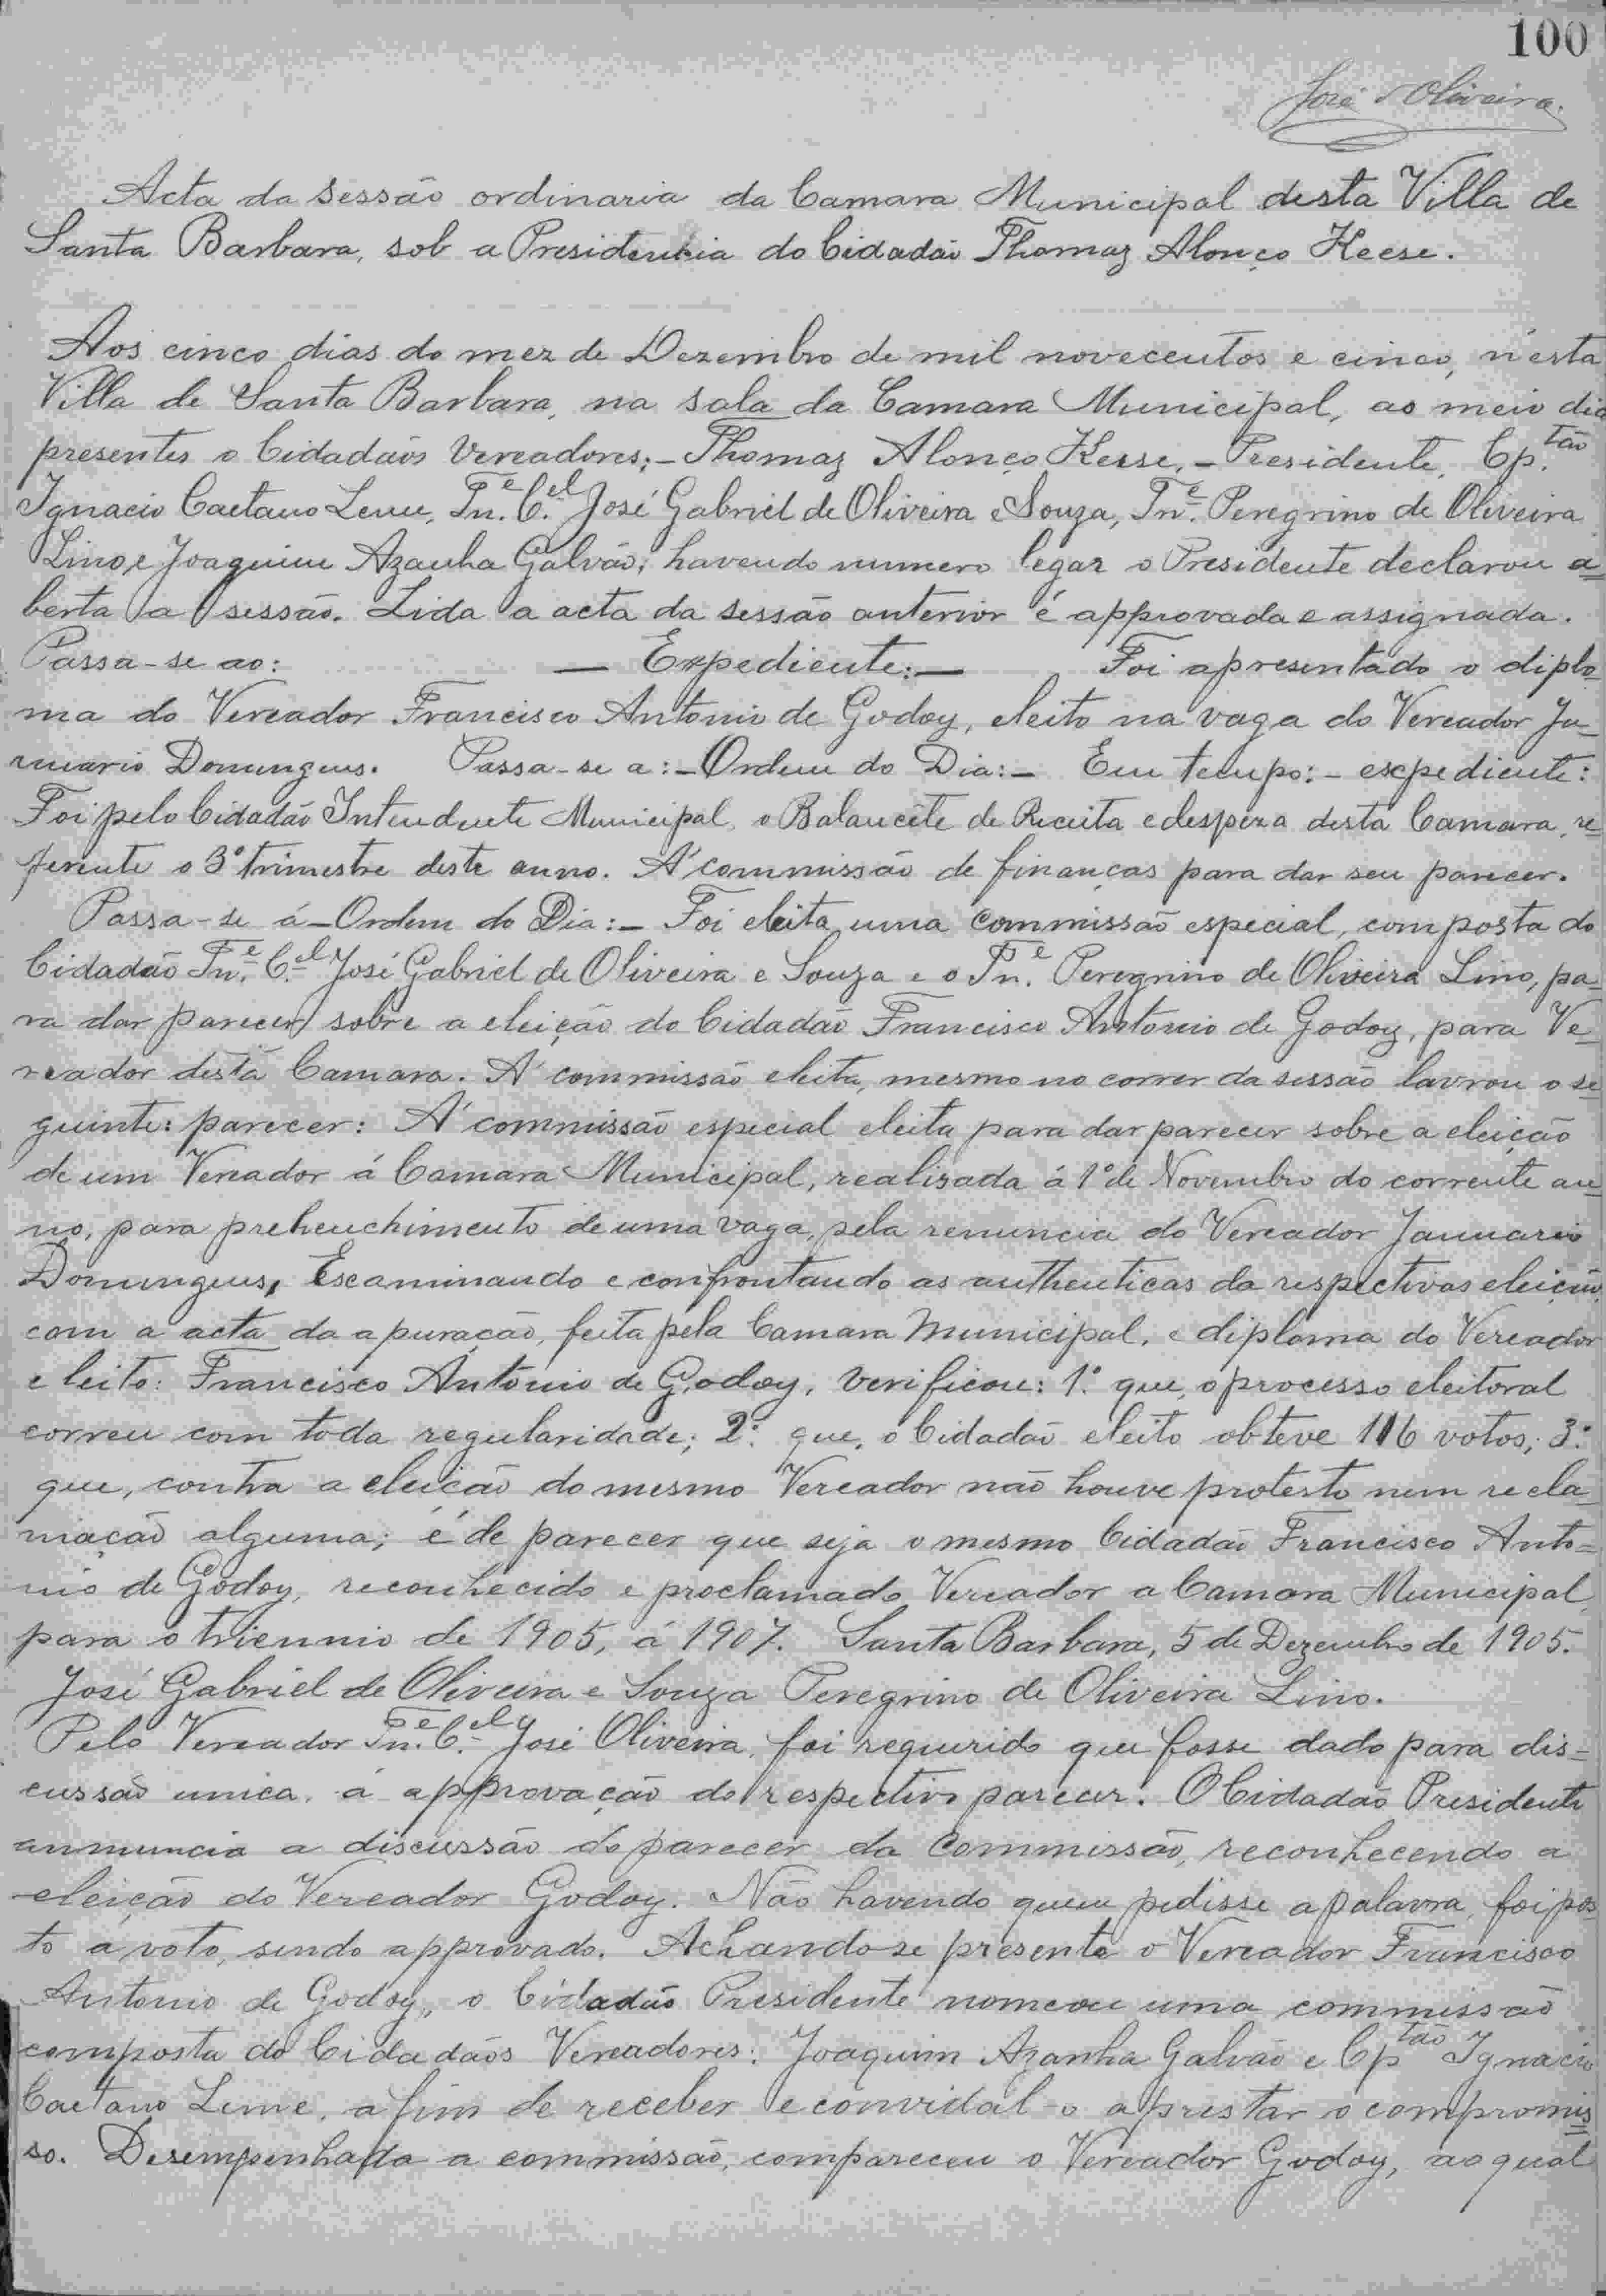 100
José d'Oliveira.
Acta da sessão ordinaria da Camara Municipal desta Villa de
Santa Barbara, sob a Presidencia do Cidadão Thomaz Alonço Keese.
Aos cinco dias do mez de Dezembro de mil novecentos e cinco, n'esta
Villa de Santa Barbara, na sala da Camara Municipal, ao meio dia
presentes o Cidadãos Vereadores; - Thomaz Alonço Keese, - Presidente, Cp.tão
Ignacio Caetano Leme, Tn.e C.el José Gabriel de Oliveira e Souza, Tn.e Peregrino de Oliveira
Lino, e Joaquim Azanha Galvão; havendo numero legar o Presidente declarou a=
berta a sessão. Lida a acta da sessão anterior é approvada e assignada.
Passa-se ao: — Expediente: — Foi apresentado o diplo-
ma do Vereador Francisco Antonio de Godoy, eleito na vaga do Vereador Ja-
nuario Domingues. Passa-se a: - Ordem do Dia: - Em tempo: - expediente:
Foi pelo Cidadão Intendente Municipal, o Balancête de Receita e despeza desta Camara, re=
ferente o 3º trimestre deste anno. A' commissão de finanças para dar seu parecer.
Passa-se á - Ordem do Dia: - Foi eleita uma commissão especial, composta do
Cidadão Tn.e C.el José Gabriel de Oliveira e Souza e o Tn.e Peregrino de Oliveira Lino, pa-
ra dar parecer sobre a eleição do Cidadão Francisco Antonio de Godoy, para Ve-
reador desta Camara. A' commissão eleita, mesmo no correr da sessão lavrou o se-
guinte: parecer: A' commissão especial eleita para dar parecer sobre a eleição
de um Vereador á Camara Municipal, realisada á 1º de Novembro do corrente an=
no, para prehenchimento de uma vaga, pela renuncia do Vereador Januario
Domingues, Escaminando e confrontando as authenticas da respectivas eleição,
com a acta da apuração, feita pela Camara Municipal, e diploma do Vereador
eleito: Francisco Antonio de Godoy, verificou: 1.º que, o processo eleitoral
correu com toda regularidade; 2.º que, o Cidadão eleito obteve 116 votos; 3.º
que, contra a eleição do mesmo Vereador não houve protesto nem recla-
mação alguma; é de parecer que seja o mesmo Cidadão Francisco Anto=
nio de Godoy, reconhecido e proclamado Vereador a Camara Municipal,
para o triennio de 1905, á 1907. Santa Barbara, 5 de Dezembro de 1905.
José Gabriel de Oliveira e Souza Peregrino de Oliveira Lino.
Pelo Vereador Tn.e C.el José Oliveira, foi requerido que fosse dado para dis=
cussão unica, á approvação do respectivo parecer. O Cidadão Presidente
annuncia a discussão do parecer da commissão, reconhecendo a
eleição do Vereador Godoy. Não havendo quem pedisse a palavra, foi pos-
to a voto, sendo approvado. Achando-se presente o Vereador Francisco
Antonio de Godoy, o Cidadão Presidente nomeou uma commissão
composta do Cidadãos Vereadores: Joaquim Azanha Galvão e Cp.tão Ignacio
Caetano Leme, a fim de receber e convidal-o a prestar o compromis=
so. Desempenhada a commissão, compareceu o Vereador Godoy, ao qual